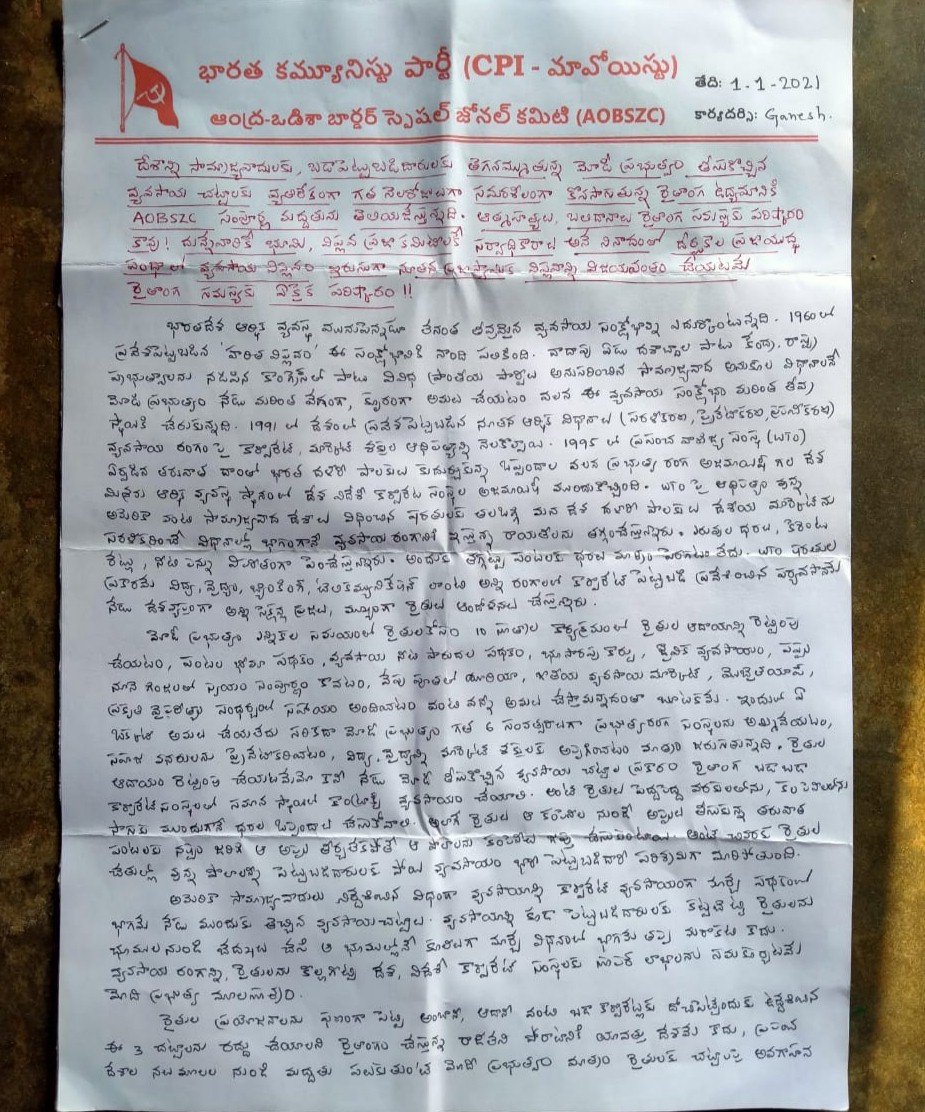 భారత కమ్యూనిస్టు పార్టీ (CPI - మావోయిస్టు)
తేది: 1-1-2021
ఆంధ్ర-ఒడిశా బార్డర్ స్పెషల్ జోనల్ కమిటి (AOBSZC)
కార్యదర్శి: Ganesh.
దేశాన్ని సామ్రాజ్యవాదులకు, బడాపెట్టుబడిదారులకు తెగనమ్ముతున్న మోడీ ప్రభుత్వం తీసుకొచ్చిన
వ్యవసాయ చట్టాలకు వ్యతిరేకంగా గత నెలరోజులుగా సమరశీలంగా కొనసాగుతున్న రైతాంగ ఉద్యమానికి
AOBSZC సంపూర్ణ మద్దతును తెలియజేస్తున్నది. ఆత్మహత్యలు, బలిదానాలు రైతాంగ సమస్యకు పరిష్కారం
కావు! దున్నేవారికే భూమి, విప్లవ ప్రజాకమిటీలకే సర్వాధికారాలు అనే నినాదంతో దీర్ఘకాల ప్రజాయుద్ధ
పంథాలో వ్యవసాయ విప్లవం ఇరుసుగా నూతన ప్రజాస్వామిక విప్లవాన్ని విజయవంతం చేయటమే
రైతాంగ సమస్యకు ఏకైక పరిష్కారం !!
భారతదేశ ఆర్థిక వ్యవస్థ మునుపెన్నడూ లేనంత తీవ్రమైన వ్యవసాయ సంక్షోభాన్ని ఎదుర్కొంటున్నది. 1960 లో
ప్రవేశపెట్టబడిన 'హరిత విప్లవం' ఈ సంక్షోభానికి నాంది పలికింది. దాదాపు ఏడు దశాబ్దాల పాటు కేంద్ర, రాష్ట్ర
ప్రభుత్వాలను నడిపిన కాంగ్రెస్‌తో పాటు వివిధ ప్రాంతీయ పార్టీలు అనుసరించిన సామ్రాజ్యవాద అనుకూల విధానాలనే
మోడీ ప్రభుత్వం నేడు మరింత వేగంగా, క్రూరంగా అమలు చేయటం వలన ఈ వ్యవసాయ సంక్షోభం మరింత తీవ్ర
స్థాయికి చేరుకున్నది. 1991 లో దేశంలో ప్రవేశపెట్టబడిన నూతన ఆర్థిక విధానాలు (సరళీకరణ, ప్రైవేటీకరణ, ప్రపంచీకరణ)
వ్యవసాయ రంగం పై కార్పొరేట్, మార్కెట్ శక్తుల ఆధిపత్యాన్ని నెలకొల్పాయి. 1995 లో ప్రపంచ వాణిజ్య సంస్థ (WTO)
ఏర్పడిన తరువాత దాంతో భారత దళారీ పాలకులు కుదుర్చుకున్న ఒప్పందాల వలన ప్రభుత్వ రంగ అజమాయిషీ గల దేశ
ఆర్థిక వ్యవస్థ స్థానంలో దేశ విదేశీ కార్పొరేట్ సంస్థల అజమాయిషీ ముందుకొచ్చింది. WTO పై ఆధిపత్యం వున్న
అమెరికా వంటి సామ్రాజ్యవాద దేశాలు విధించిన షరతులకు తలఒగ్గిన మన దేశ దళారీ పాలకులు దేశీయ మార్కెట్‌ను
సరళీకరించే విధానాల్లో భాగంగానే వ్యవసాయ రంగానికి ఇస్తున్న రాయితీలను తగ్గించేస్తున్నారు. ఎరువుల ధరలు, కరెంటు
రేట్లు, నీటి పన్ను విపరీతంగా పెంచేస్తున్నారు. అందుకు తగ్గట్టు పంటలకు ధరలు మాత్రం పెరగటం లేదు. WTO షరతుల
ప్రకారమే విద్య, వైద్యం, బ్యాంకింగ్, టెలికమ్యూనికేషన్ లాంటి అన్ని రంగాలలో కార్పొరేట్ పెట్టుబడి ప్రవేశించిన పర్యవసానమే
నేడు దేశవ్యాప్తంగా అన్ని సెక్షన్ల ప్రజలు, ముఖ్యంగా రైతులు ఆందోళనలు చేస్తున్నారు.
మోడీ ప్రభుత్వం ఎన్నికల సమయంలో రైతులకోసం 10 సూత్రాల కార్యక్రమంలో రైతుల ఆదాయాన్ని రెట్టింపు
చేయటం, పంటల భీమా పథకం, వ్యవసాయ నీటి పారుదల పథకం, భూసారపు కార్డు, జైవిక వ్యవసాయం, పప్పు
నూనె గింజలలో స్వయం సంపూర్ణం కావటం, వేపు పూతతో యూరియా, జాతీయ వ్యవసాయ మార్కెట్, మొబైల్‌యాప్,
ప్రకృతి వైపరీత్య సందర్భంలో సహాయం అందించటం వంటి వన్నీ అమలు చేస్తామన్నదంతా బూటకమే. ఇందులో ఏ
ఒక్కటీ అమలు చేయలేదు సరికదా మోడీ ప్రభుత్వం గత 6 సంవత్సరాలుగా ప్రభుత్వరంగ సంస్థలను అమ్మివేయటం,
సహజ వనరులను ప్రైవేటీకరించటం, విద్య, వైద్యాన్ని మార్కెట్ శక్తులకు అప్పగించటం మాత్రం జరుగుతున్నది. రైతుల
ఆదాయం రెట్టింపు చేయటమేమో కానీ నేడు మోడీ తీసుకొచ్చిన వ్యవసాయ చట్టాల ప్రకారం రైతాంగం బడా బడా
కార్పొరేట్ సంస్థలతో సమాన స్థాయిలో కాంట్రాక్ట్ వ్యవసాయం చేయాలి. అంటే రైతులు పెద్దపెద్ద వర్తకులతోను, కంపెనీలతోను
సాగుకు ముందుగానే ధరల ఒప్పందాలు చేసుకోవాలి. అలాగే రైతులు ఆ కంపెనీల నుండి అప్పులు తీసుకున్న తరువాత
పంటలకు నష్టం జరిగి ఆ అప్పు తీర్చలేకపోతే ఆ పొలాలను కంపెనీలు తీసుకుంటాయి. అంటే చివరికి రైతుల
చేతుల్లో వున్న పొలాలన్నీ పెట్టుబడిదారులకు పోయి వ్యవసాయం భారీ పెట్టుబడిదారీ పరిశ్రమగా మారిపోతుంది.
అమెరికా సామ్రాజ్యవాదులు నిర్దేశించిన విధంగా వ్యవసాయాన్ని కార్పొరేట్ వ్యవసాయంగా మార్చే పథకంలో
భాగమే నేడు ముందుకు తెచ్చిన వ్యవసాయచట్టాలు. వ్యవసాయాన్ని కూడా పెట్టుబడిదారులకు కట్టబెట్టి రైతులను
భూములనుండి బేదఖలు చేసి ఆ భూముల్లోనే కూలీలుగా మార్చే విధానంలో భాగమే తప్ప మరొకటి కాదు.
వ్యవసాయ రంగాన్ని, రైతులను కొల్లగొట్టి దేశ, విదేశీ కార్పొరేట్ సంస్థలకు సూపర్ లాభాలను సమకూర్చటమే
మోడి ప్రభుత్వ మూలసూత్రం.
రైతుల ప్రయోజనాలను ఫణంగా పెట్టి అంబానీ, ఆదానీ వంటి బడా కార్పొరేట్లకు దోచిపెట్టేందుకు ఉద్దేశించిన
ఈ 3 చట్టాలను రద్దు చేయాలని రైతాంగం చేస్తున్న రాజీలేని పోరాటానికి యావత్తు దేశమే కాదు, ప్రపంచ
దేశాల నలుమూలల నుండి మద్దతు పలుకుతుంటే మోడీ ప్రభుత్వం మాత్రం రైతులకు చట్టాలపై అవగాహన